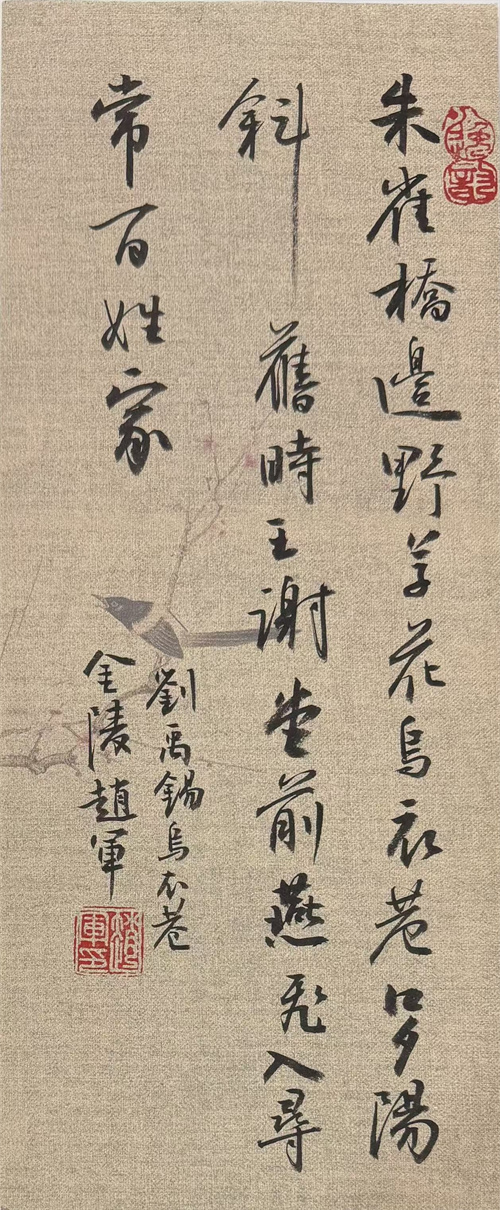 朱雀橋邊野草花烏衣巷口夕陽
斜 舊時王謝堂前燕飛入尋
常百姓家
劉禹錫烏衣巷
金陵趙軍
趙軍印